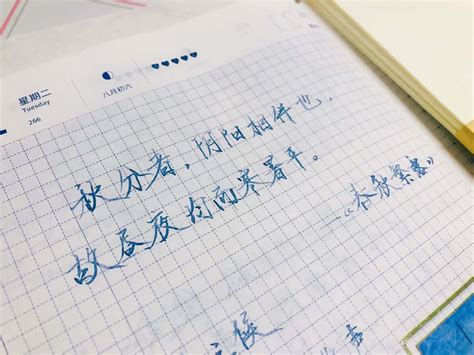 星期二
Tuesday
266
八月初六
秋分者，阴阳相伴也，
故昼夜均而寒暑平。
——《春秋繁露》
候
声